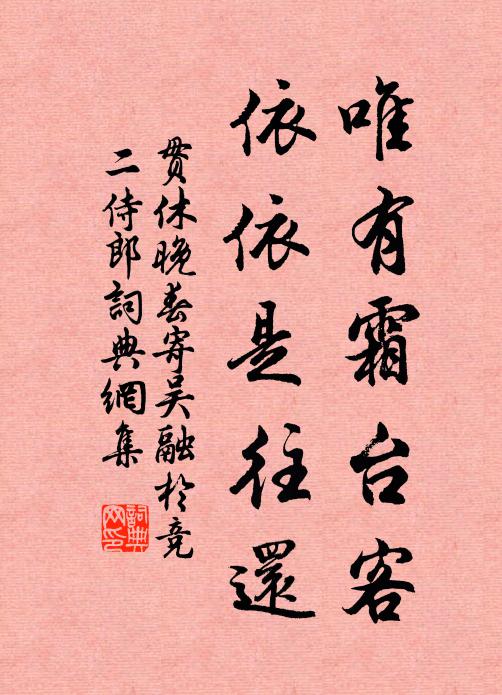 唯有霜台客
依依是往還
贯休晚春寄吴融於竞
二侍郎詞典網集
詞典網印